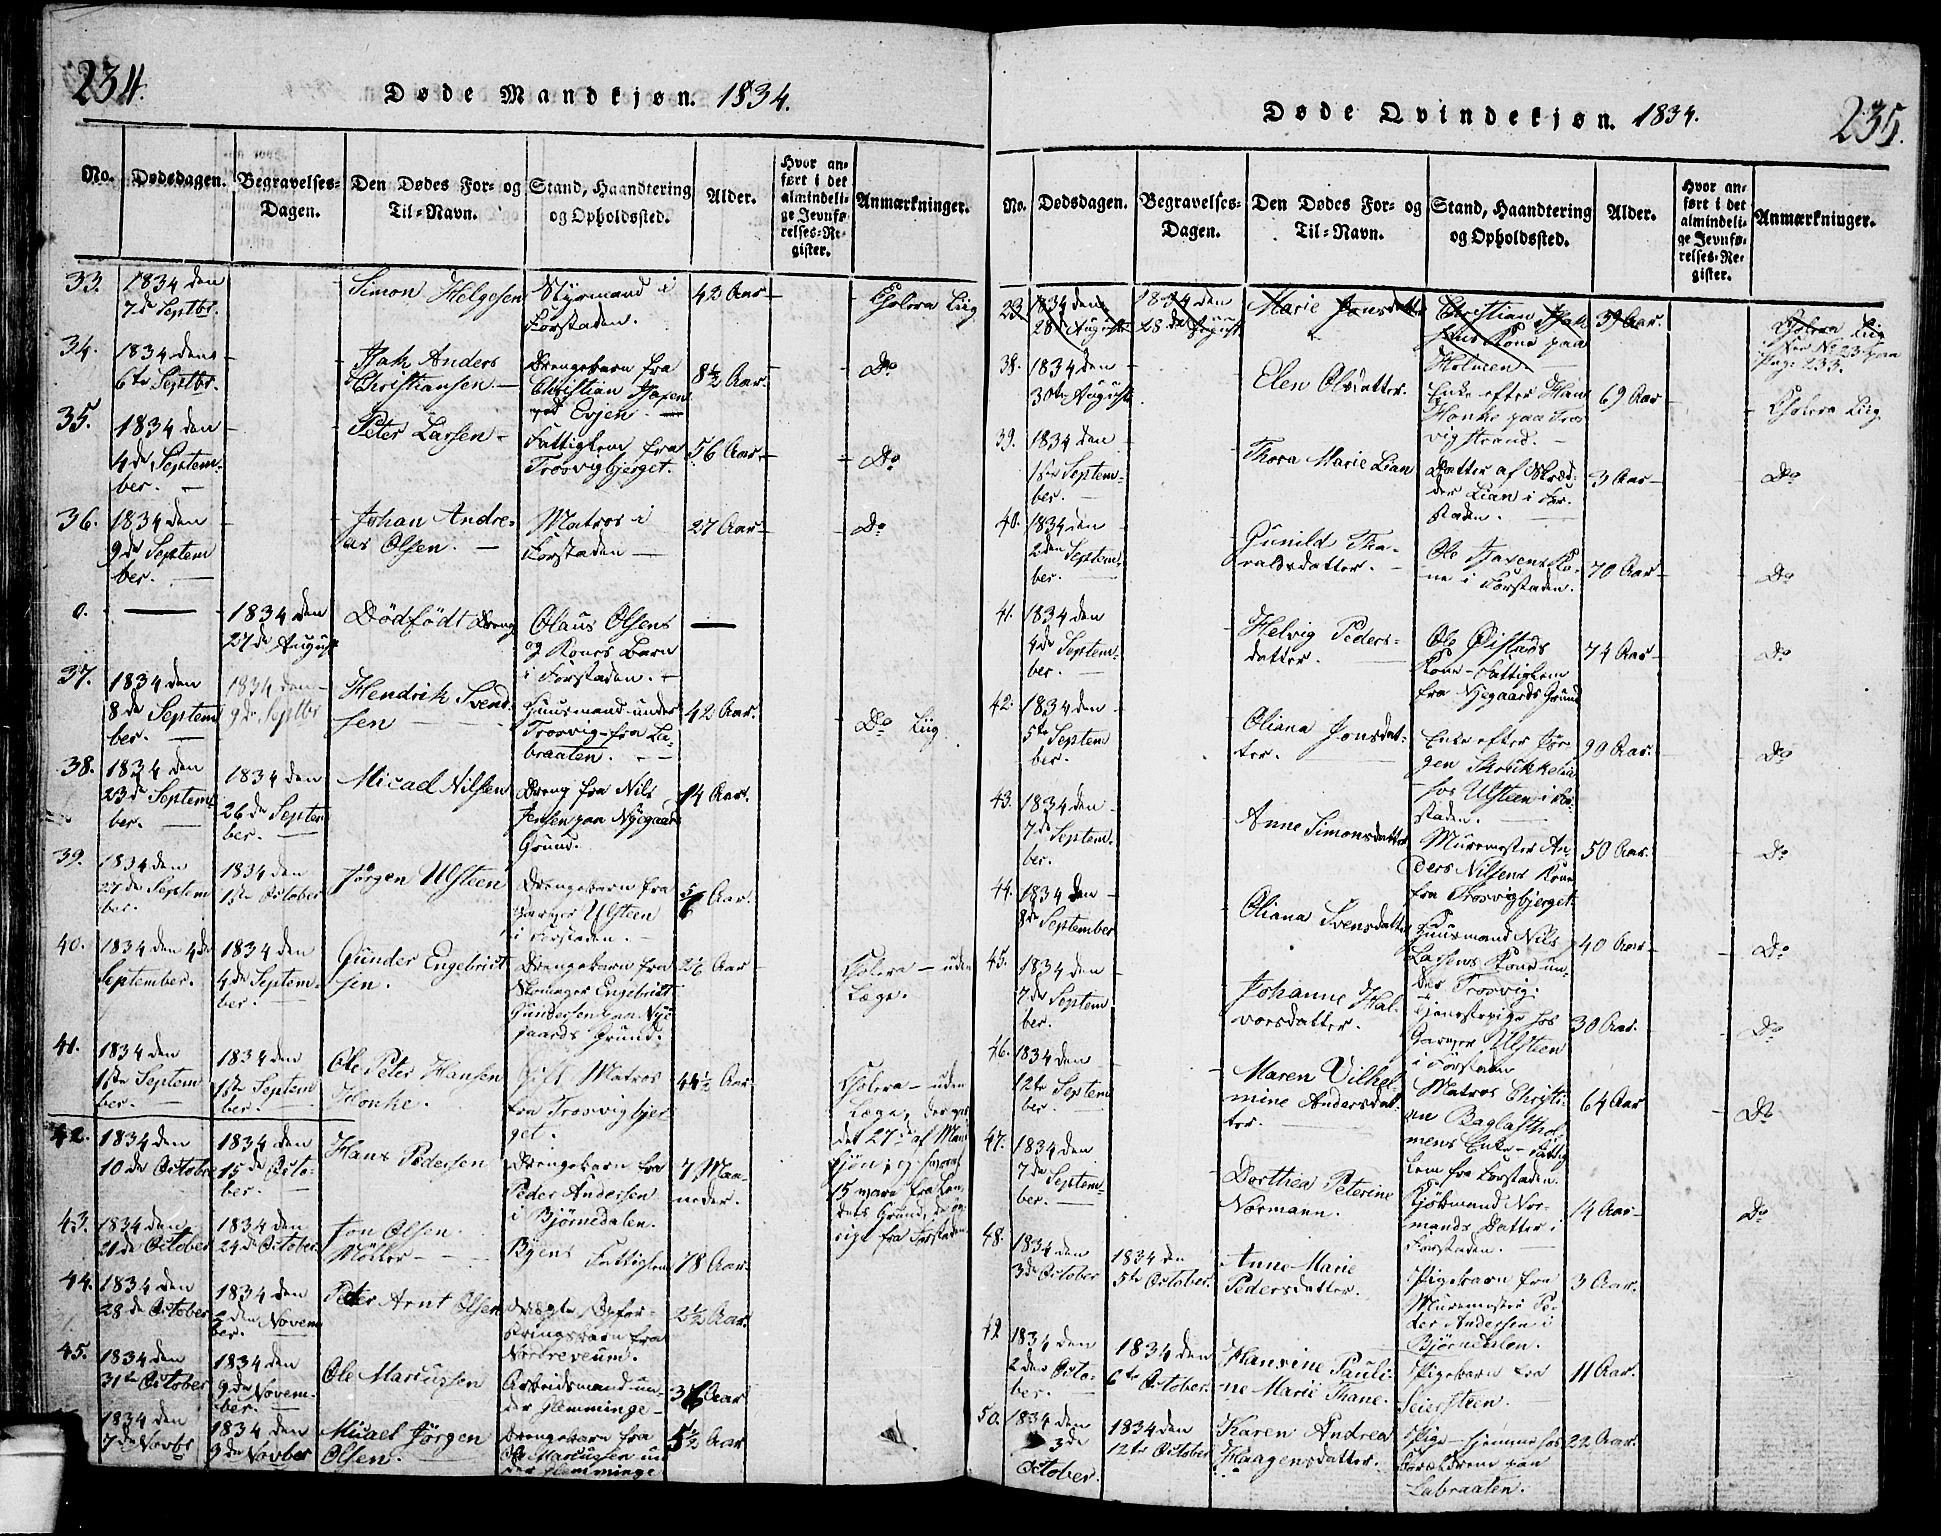 234.
Døde Mandkjøn. 1834.
No.
Dødsdagen.
Begravelses-
Dagen.
Den Dødes For- og
Til-Navn.
Stand, Haandtering
og Opholdssted.
Alder.
Hvor an-
ført i det
almindeli-
ge Jevnfø-
relses-Re-
gister.
Anmærkninger.
33.
1834 den
7de Septbr.
Simon Helgesen
Styrmand i
Forstaden.
42 Aar
Cholera Liig
34.
1834 den
6te Septbr.
Anders
Christiansen
Drengebarn fra
Christian
ved Evjen.
8½ Aar.
Do
35.
1834 den
4de Septem-
ber.
Peter Larsen
Fattiglem fra
Trosvigbjerget.
56 Aar
Do
36.
1834 den
9de Septem
ber.
Johan Andre-
as Olsen.
Matros i
Forstaden
27 Aar
Do
0.
1834 den
27de August
Dödfödt Dreng
Olaus Olsens
og Kones Barn
i Forstaden.
37.
1834 den
8de Septem
ber.
1834 den
9de Septbr
Hendrik Svend-
sen
Huusmand under
Trosvig fra La-
braaten.
42 Aar.
Do Liig.
38.
1834 den
23de Septem-
ber.
1834 den
26de Septem
ber.
Micael Nilsen
Dreng fra Nils
Jensen paa Nyegaards
Grund.
14 Aar.
39.
1834 den
27de Septem
ber.
1834 den
1ste October
Jörgen Ulsteen
Drengebarn fra
Garver Ulsteen
i Forstaden.
5/6 Aar.
40.
1834 den 4de
September.
1834 den
4de Septem-
ber.
Gunder Engebrigt
sen.
Drengebarn fra
Engebrigt
Gundersen paa Nye-
gaards Grund.
2 1/6 Aar
Cholera - uden
Læge.
41.
1834 den
1ste Septem
ber.
1834 den
1ste Septem
ber.
Ole Peter Hansen
Honke.
Gift Matros
fra Trosvigbjer
get.
44½ Aar
Cholera - uden
Læge,
det 27de af Mand
kjön, og
15 være fra Lan-
dets Grund, de öv-
rige fra Forstaden
42.
1834 den
10de October
1834 den
15de Octo-
ber.
Hans Pedersen
Drengebarn fra
Peder Andersen
i Björnedalen.
7 Maa-
neder.
43.
1834 den
21de October
1834 den
24de October.
Jon Olsen
Möller
Byens Fattiglem
78 Aar
44.
1834 den
28de October
1834 den
2den Novem
ber.
Peter Arnt Olsen
Opfor-
stringsbarn fra
2½ Aar.
45.
1834 den
31te October
1834 den
9de Novem-
ber.
Ole Marcussen
Arbeidsmand un-
der Glemminge
36 Aar
1834 den
7de Novbr
1834 den
9de Novbr
Micael Jörgen
Olsen.
Drengebarn fra
Ole Marcussen un
der Glemminge
5½ Aar
235.
Døde Qvindekjøn. 1834.
No.
Dødsdagen.
Begravelses-
Dagen.
Den Dødes For- og
Til-Navn.
Stand, Haandtering
og Opholdssted.
Alder.
Hvor an-
ført i det
almindeli-
ge Jevnfø-
relses-Re-
gister.
Anmærkninger.
23.
1834 den
28de August
1834 den
28de August
Marie Jonsdatter
Christian
Kone paa
Holmen
39 Aar.
Cholera Liig
No 23 paa
Page 233.
38.
1834 den
30te August
Elen Olsdatter.
Enke efter Hans
Honke paa Tros-
vigstrand.
69 Aar
Cholera Liig
39.
1834 den
1ste Septem-
ber.
Thora Marie Lian
Datter af Skræd-
der Lian i For-
staden.
3 Aar
Do
40.
1834 den
2den Septem-
ber.
Gunild Tha-
raldsdatter.
Ole Ko-
ne i Forstaden.
70 Aar
Do
41.
1834 den
4de Septem-
ber.
Helvig Peders-
datter.
Ole Öistads
Kone - Fattiglem
fra Nyegaards Grund
74 Aar
Do
42.
1834 den
5te Septem
ber.
Oliana Jonsdat-
ter.
Enke efter Jör-
gen
hos Ulsteen i For-
staden.
99 Aar.
Do
43.
1834 den
7de Septem-
ber.
Anne Simonsdatter
Muremester An
ders Nilsens Kone
fra Trosvigbjerget.
50 Aar.
Do
44.
1834 den
8de September
Oliana Svensdatter
Huusmand Nils
Larsens Kone un-
der Trosvig.
40 Aar
Do
45.
1834 den
7de Septem
ber.
Johanne Hal-
vorsdatter.
Tjenestepige hos
Garver Ulsteen
i Forstaden
30 Aar.
Do
46.
1834 den
12te Septem
ber.
Maren Vilhel-
mine Andersdat-
ter.
Matros Christi-
an Baglasthol-
mens Enke - Fattig
lem fra Forstaden.
64 Aar
Do
47.
1834 den
7de Septem-
ber.
Dorthea Peterine
Normann.
Kjöbmand Nor-
mands Datter i
Forstaden.
14 Aar
Do
48.
1834 den
3de October
1834 den
5te October.
Anne Marie
Pedersdatter.
Pigebarn fra
Muremester Pe-
der Andersen i
Björnedalen.
3 Aar.
49
1834 den
2den Octo-
ber.
1834 den
6te October.
Hansine Pauli-
ne Marie Thane.
Pigebarn fra
Seiersteen.
11 Aar.
50.
1834 den
3de
October.
1834 den
12te October
Karen Andrea
Haagensdatter.
Pige hjemme hos
Forældrene paa
Labraaten.
22 Aar.